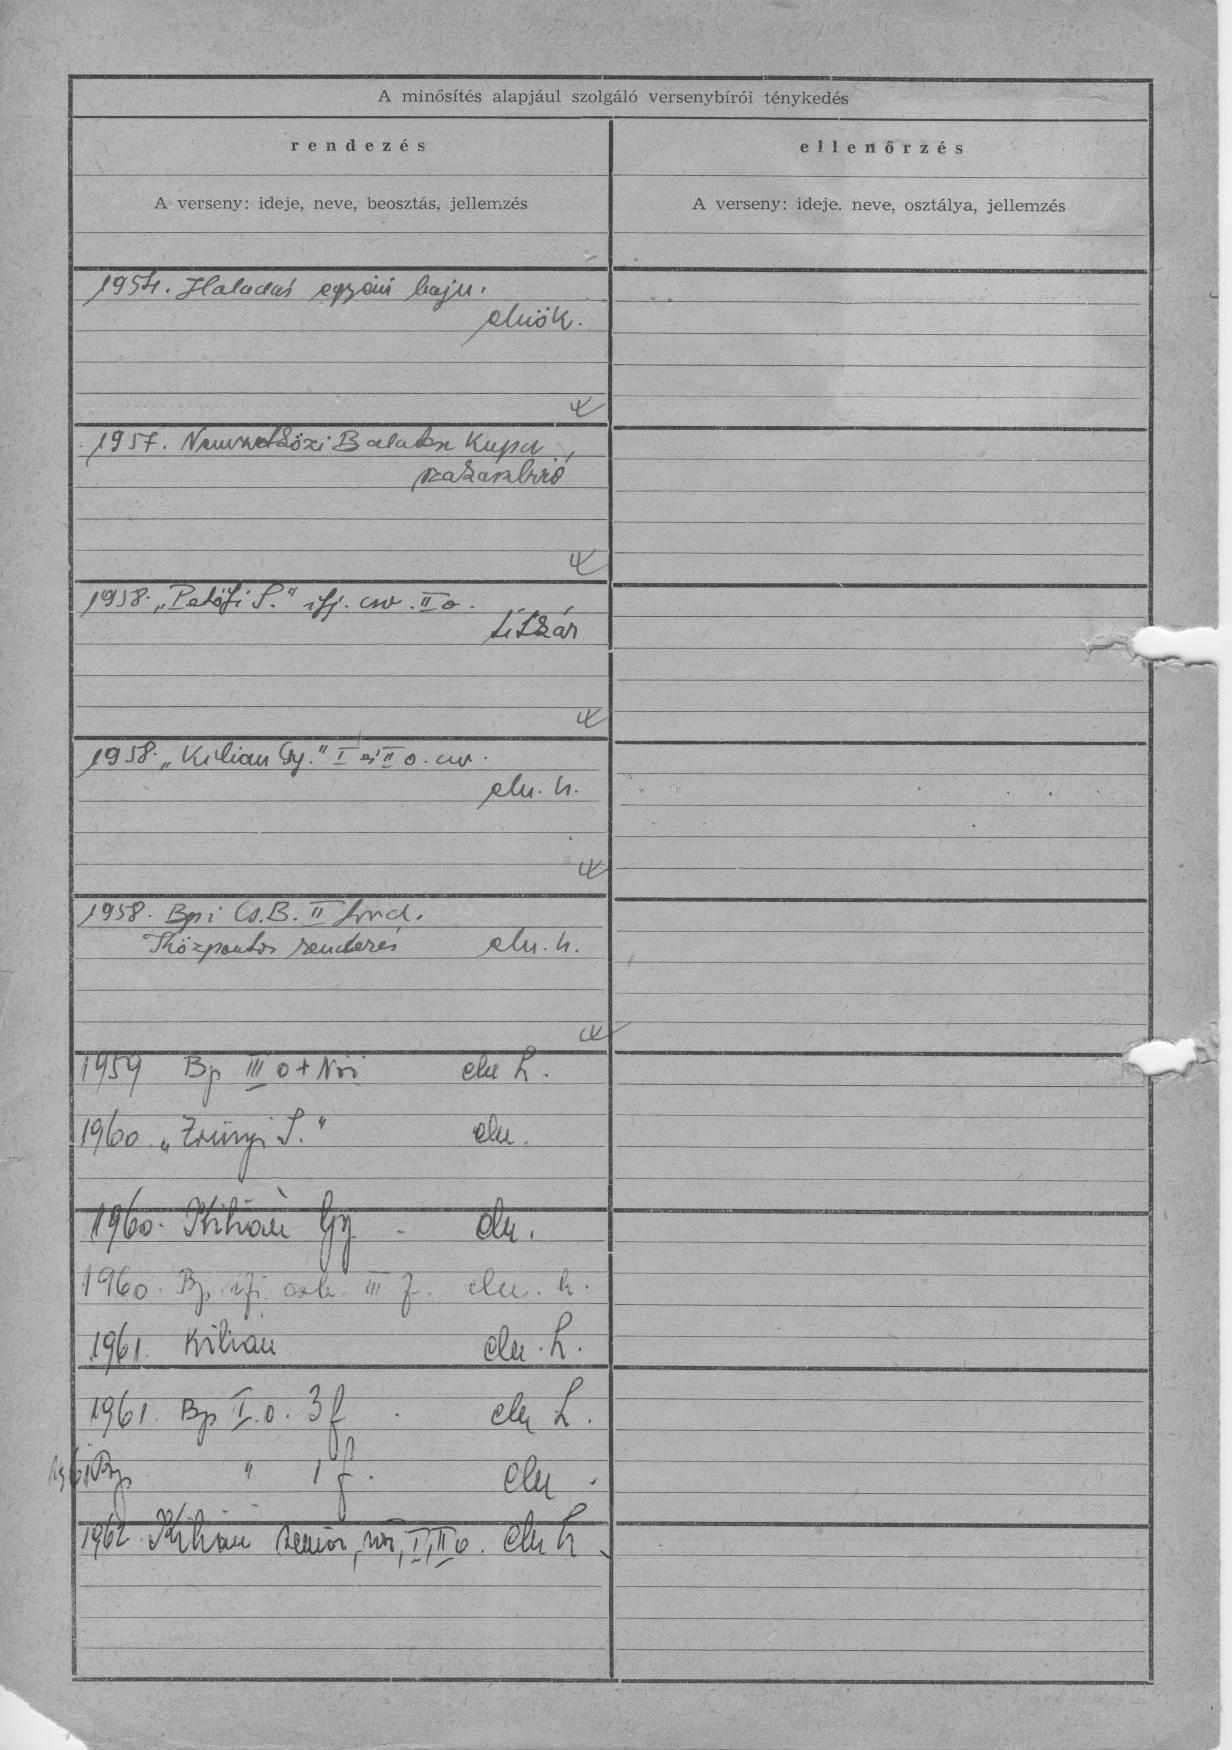 A minősítés alapjául szolgáló versenybírói ténykedés
rendezés
ellenőrzés
A verseny: ideje, neve, beosztás, jellemzés
A verseny: ideje. neve, osztálya, jellemzés
1954. Haladás egyéni bajn.
elnök.
1957. Nemzetközi Balaton Kupa,
szakaszbíró
1958. „Petőfi S." ifj. csv. II o.
titkár
1958. „Kilián Gy." I és II o. csv.
eln. h.
1958. Bpi Cs.B. II ford.
Központos rendezés eln. h.
1959 Bp III o + Női eln h.
1960 „Zrínyi S." eln.
1960. Kilián Gy. eln.
1960. Bp. ifj. csb. III f. eln. h.
1961. Kilián eln. h.
1961. Bp I. o. 3 f. eln h.
1961 Bp " 1 f. eln.
1962 Kilián senior, női, I, II o. eln h.